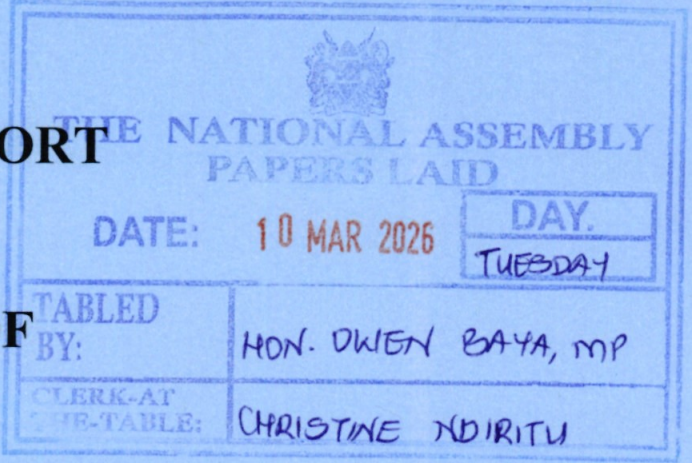 ORT
THE NATIONAL ASSEMBLY
PAPERS LAID
DATE: 10 MAR 2026
DAY.
TUESDAY
F
TABLED
BY: HON. OWEN BAYA, MP
CLERK-AT
THE-TABLE: CHRISTINE NDIRITU